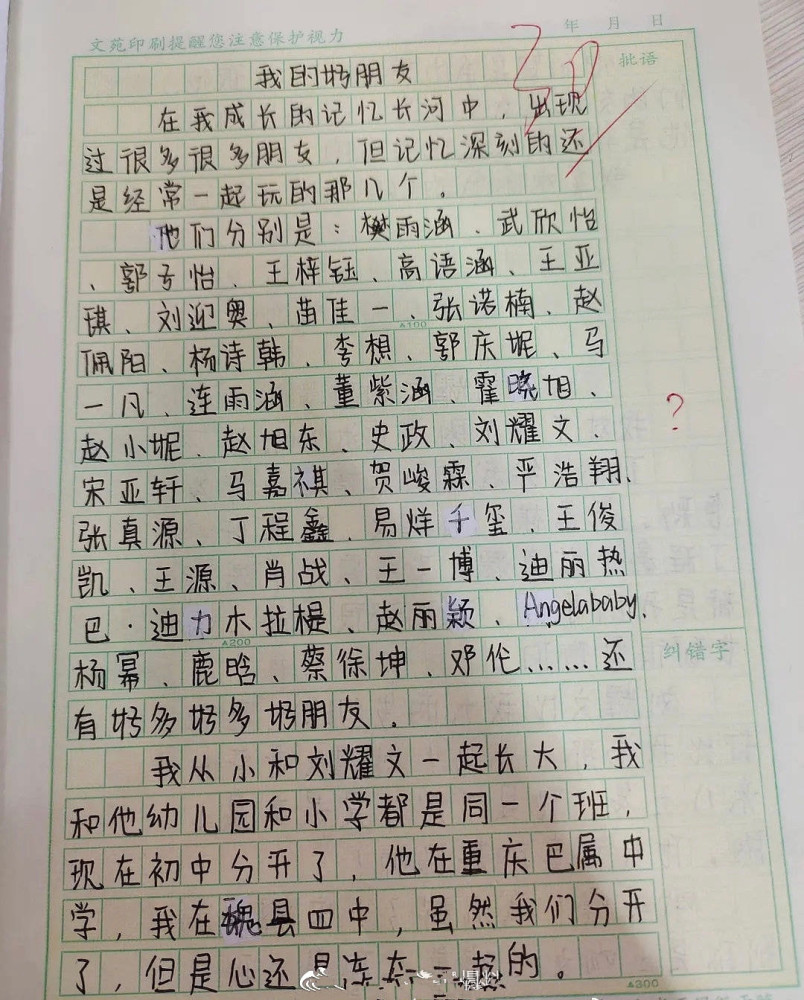 年 月 日
文苑印刷提醒您注意保护视力
批语
我的好朋友
在我成长的记忆长河中，出现
过很多很多朋友，但记忆深刻的还
是经常一起玩的那几个。
他们分别是：樊雨涵、武欣怡
、郭子怡、王梓钰、高语涵、王亚
琪、刘迎奥、苗佳一、张诺楠、赵
佩阳、杨诗韩、李想、郭庆妮、马
一凡、连雨涵、董紫涵、霍晓旭、
赵小妮、赵旭东、史政、刘耀文、
?
宋亚轩、马嘉祺、贺峻霖、严浩翔、
张真源、丁程鑫、易烊千玺、王俊
凯、王源、肖战、王一博、迪丽热
巴·迪力木拉提、赵丽颖、Angelababy、
杨幂、鹿晗、蔡徐坤、邓伦……还
有好多好多好朋友。
我从小和刘耀文一起长大，我
和他幼儿园和小学都是同一个班，
现在初中分开了，他在重庆巴属中
学，我在魏县四中，虽然我们分开
了，但是心还是连在一起的。
纠错字
▲100
▲200
▲300